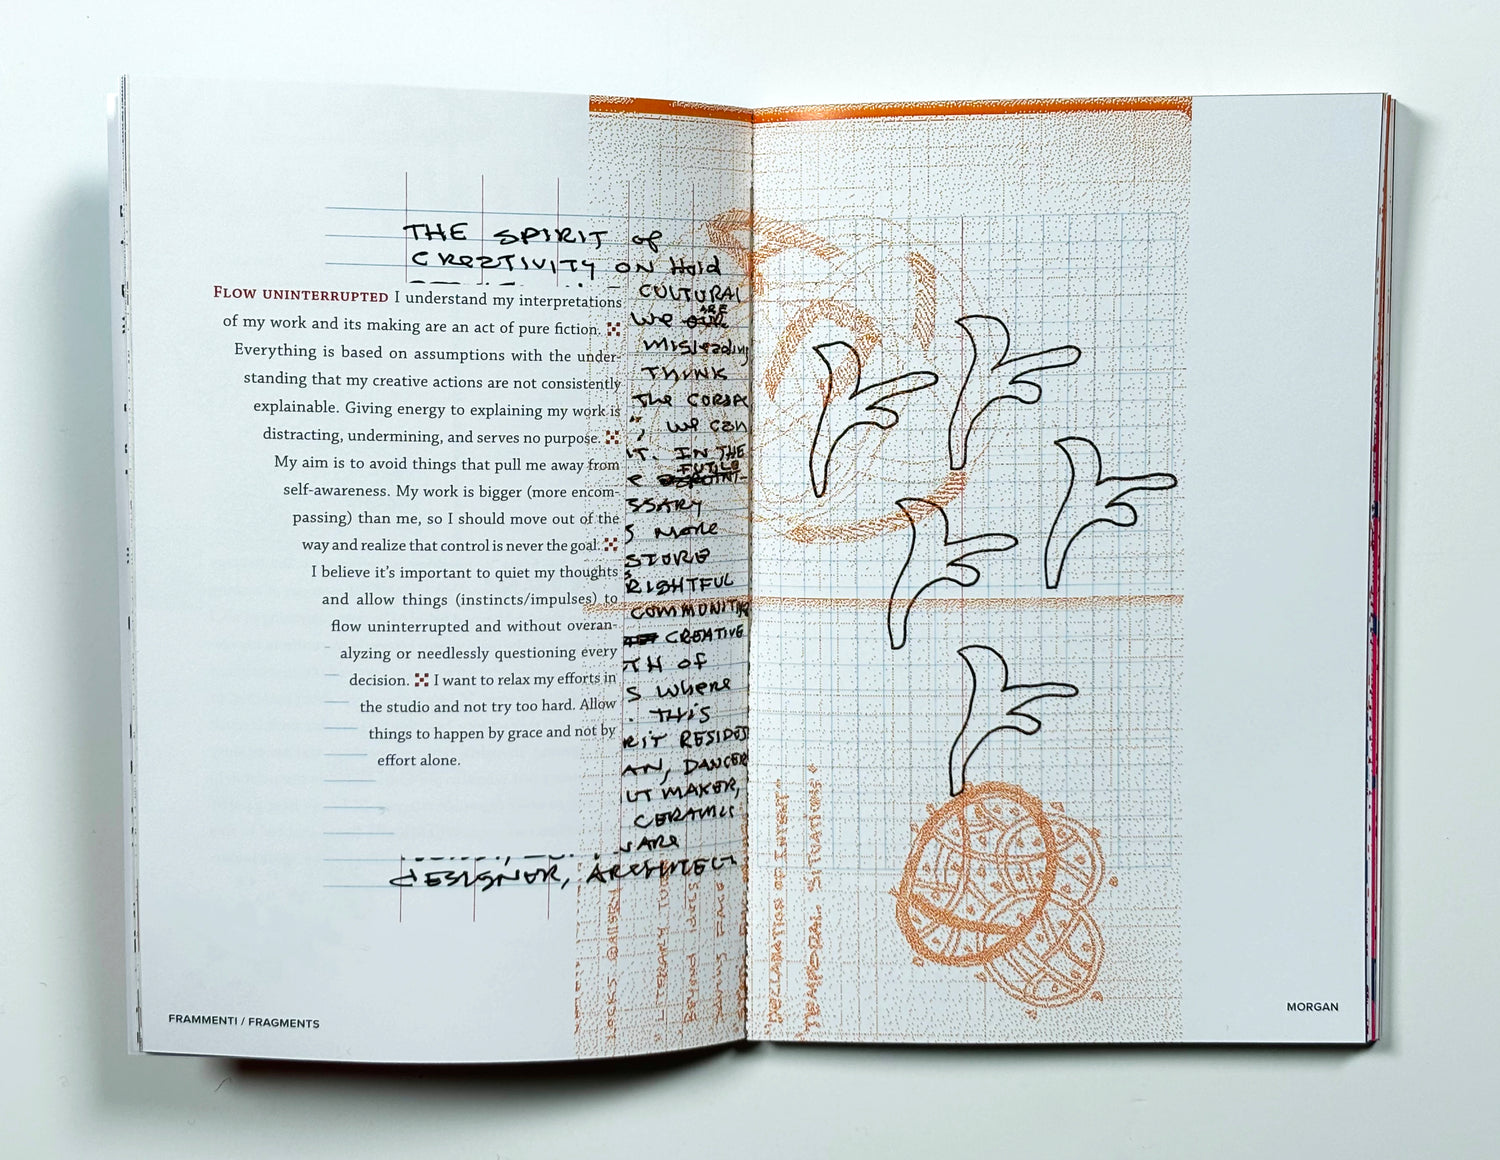 THE SPIRIT of
CREATIVITY ON Hold
FLOW UNINTERRUPTED I understand my interpretations
of my work and its making are an act of pure fiction.
Everything is based on assumptions with the under-
standing that my creative actions are not consistently
explainable. Giving energy to explaining my work is
distracting, undermining, and serves no purpose.
My aim is to avoid things that pull me away from
self-awareness. My work is bigger (more encom-
passing) than me, so I should move out of the
way and realize that control is never the goal.
I believe it's important to quiet my thoughts
and allow things (instincts/impulses) to
flow uninterrupted and without overan-
alyzing or needlessly questioning every
decision. I want to relax my efforts in
the studio and not try too hard. Allow
things to happen by grace and not by
effort alone.
CULTURAL
We ARE
Misleading
THINK
The CORPO
, we can
IT. IN THE
FUTILE
SSARY
S MORE
STORE
RIGHTFUL
COMMUNITIE
CREATIVE
TH OF
S WHERE
. THIS
RIT RESIDES
AN, DANCER
UT MAKER,
CERAMIC
WARE
DESIGNER, ARCHITECT
LITERARY
BEYOND IDLES
TEMPORAL SITUATIONS
FRAMMENTI / FRAGMENTS
MORGAN